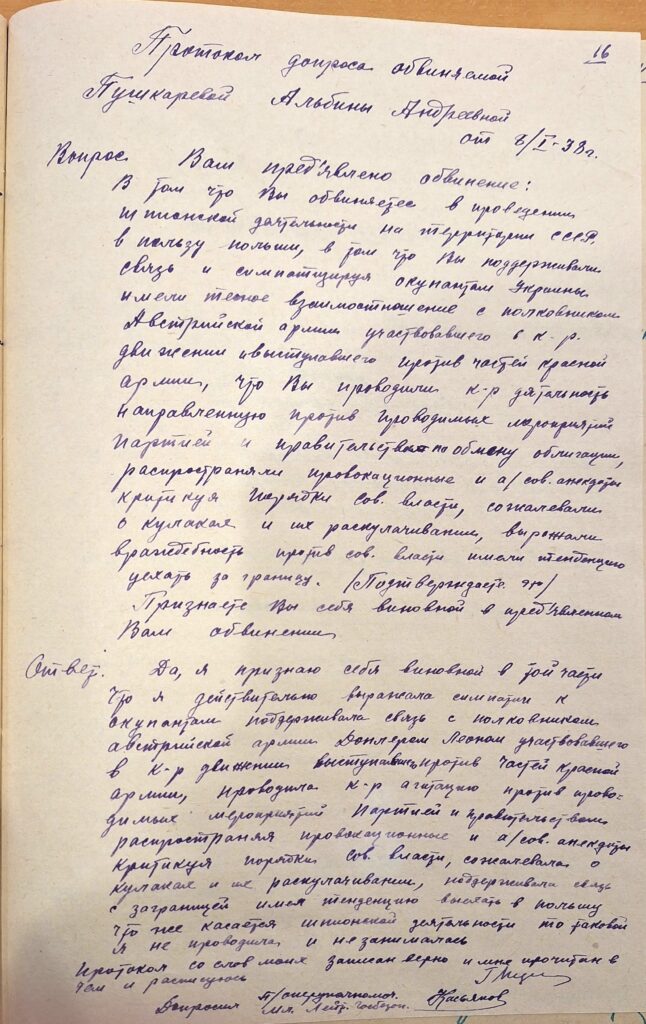 16
Протокол допроса обвиняемой
Пушкаревой Альбины Андреевной
от 8/I-38г.
Вопрос Вам пред'явлено обвинение:
В том что Вы обвиняетес в проведении
шпионской деятельности на территории СССР,
в пользу польши, в том что Вы поддерживали
связь и симпатизируя окупантам Украины
имели тесное взаимоотношение с полковником
Австрийской армии участвовавшего в к-р.
движении и выступавшего против частей красной
армии, что Вы проводили к-р деятельность
направленную против проводимых мероприятий
партией и правительством по обмену облигации,
распространяли провокационные и а/сов. анекдоты
критикуя порядки сов. власти, сожалевали
о кулаках и их раскулачивании, выражали
враждебность против сов. власти имели тенденцию
уехать за границу. (Подтверждаете это)
Признаете Вы себя виновной в пред'явленном
Вам обвинении
Ответ. Да, я признаю себя виновной в той части
что я действительно выражала симпатии к
окупантам поддерживала связь с полковником
австрийской армии Доплером Леоном участвовавшего
в к-р движении выступавшего против частей красной
армии, проводила к-р агитацию против прово-
димых мероприятий Партией и правительством
распространяя провокационные и а/сов. анекдоты
критикуя порядки сов. власти, сожалевала о
кулаках и их раскулачивании, поддерживала связь
с заграницей имея тенденцию выехать в польшу
что же касается шпионской деятельности то таковой
я не проводила и не занималась
протокол со слов моих записан верно и мне прочитан в
чем и расписуюсь
Допросил П/оперуполномоч.
Мл. Лейт. Госбезоп. Касьянов